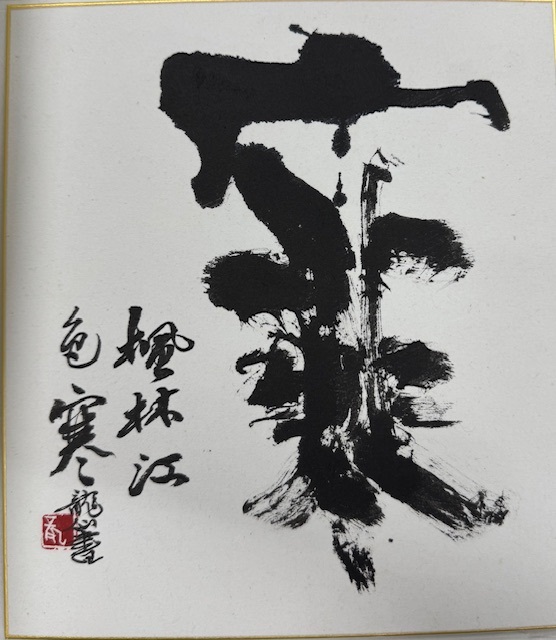 寒
楓林江
色寒
龍 書